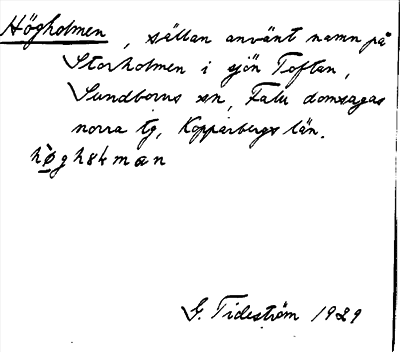 Högholmen, sällan använt namn på
Storholmen i sjön Toftan,
Sundborns sn, Falu domsagas
norra tg, Kopparbergs län.
G. Tideström 1929